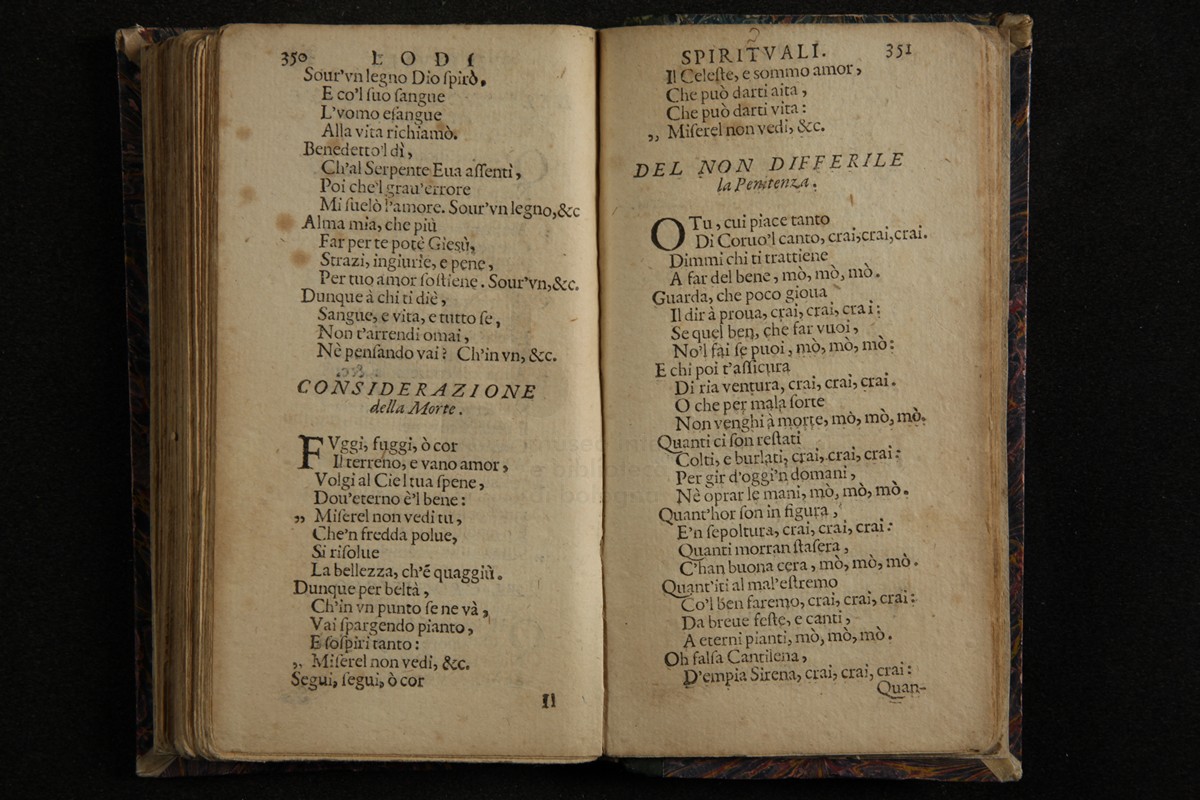 350 LODI
Sour'vn legno Dio ſpirò.
E co'l ſuo ſangue
L'vomo eſangue
Alla vita richiamò.
Benedetto'l dì,
Ch'al Serpente Eua aſſentì,
Poi che'l grau'errore
Mi ſuelò l'amore. Sour'vn legno,&c
Alma mia, che più
Far per te potè Gieſù,
Strazi, ingiurie, e pene,
Per tuo amor ſoſtiene. Sour'vn,&c.
Dunque à chi ti diè,
Sangue, e vita, e tutto ſe,
Non t'arrendi omai,
Nè penſando vai? Ch'in vn, &c.
CONSIDERAZIONE
della Morte.
FVggi, fuggi, ò cor
Il terreno, e vano amor,
Volgi al Ciel tua ſpene,
Dou'eterno è'l bene:
„ Miſerel non vedi tu,
Che'n fredda polue,
Si riſolue
La bellezza, ch'é quaggiù.
Dunque per beltà,
Ch'in vn punto ſe ne và,
Vai ſpargendo pianto,
E ſoſpiri tanto:
„ Miſerel non vedi, &c.
Segui, ſegui, ò cor
Il
SPIRITVALI. 351
Il Celeſte, e sommo amor,
Che può darti aita,
Che può darti vita:
„ Miſerel non vedi, &c.
DEL NON DIFFERILE
la Penitenza.
O Tu, cui piace tanto
Di Coruo'l canto, crai,crai,crai.
Dimmi chi ti trattiene
A far del bene, mò, mò, mò.
Guarda, che poco gioua
Il dir à proua, crai, crai, crai:
Se quel ben, che far vuoi,
No'l fai ſe puoi, mò, mò, mò:
E chi poi t'aſſicura
Di ria ventura, crai, crai, crai.
O che per mala ſorte
Non venghi à morte, mò, mò, mò.
Quanti ci ſon reſtati
Colti, e burlati, crai, crai, crai:
Per gir d'oggi'n domani,
Nè oprar le mani, mò, mò, mò.
Quant'hor ſon in figura,
E'n ſepoltura, crai, crai, crai:
Quanti morran ſtaſera,
C'han buona cera, mò, mò, mò.
Quant'iti al mal'eſtremo
Co'l Ben faremo, crai, crai, crai:
Da breue feſte, e canti,
A eterni pianti, mò, mò, mò.
Oh falſa Cantilena,
D'empia Sirena, crai, crai, crai:
Quan-